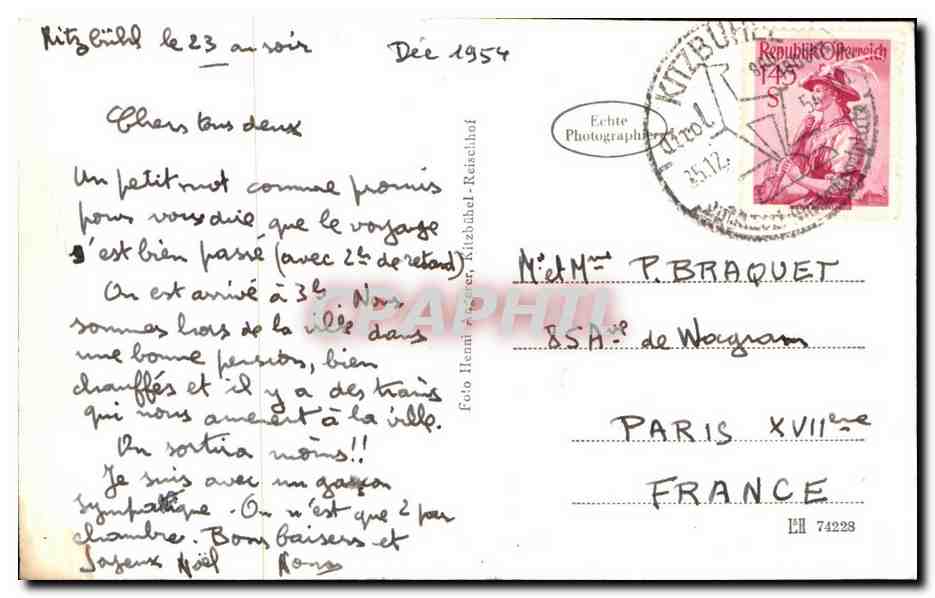 Kitzbühl le 23 au soir
Déc 1954
Chers tous deux
Un petit mot comme promis
pour vous dire que le voyage
s'est bien passé (avec 2hs de retard)
On est arrivé à 3hs. Nous
sommes hors de la ville dans
une bonne pension, bien
chauffés et il y a des trains
qui nous amènent à la ville.
On sortira moins!!
Je suis avec un garçon
sympatique. On n'est que 2 par
chambre. Bons baisers et
Joyeux Noël
Foto Henni Angerer, Kitzbühel-Reischhof
Echte
Photographie
KITZBÜHEL
Tirol
25.12.
Republik Österreich
1.45
S
Mr et Mme P. BRAQUET
85 Ave de Wagram
PARIS XVIIème
FRANCE
74228
CPAPHIL